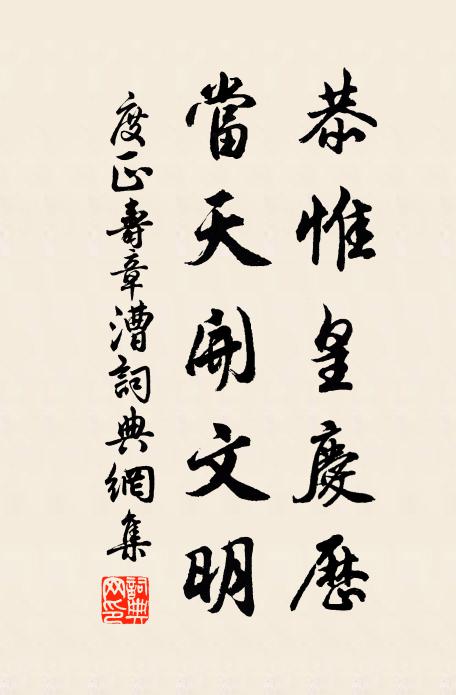 恭惟皇慶歷
當天開文明
度正壽章漕詞典網集
詞典網印